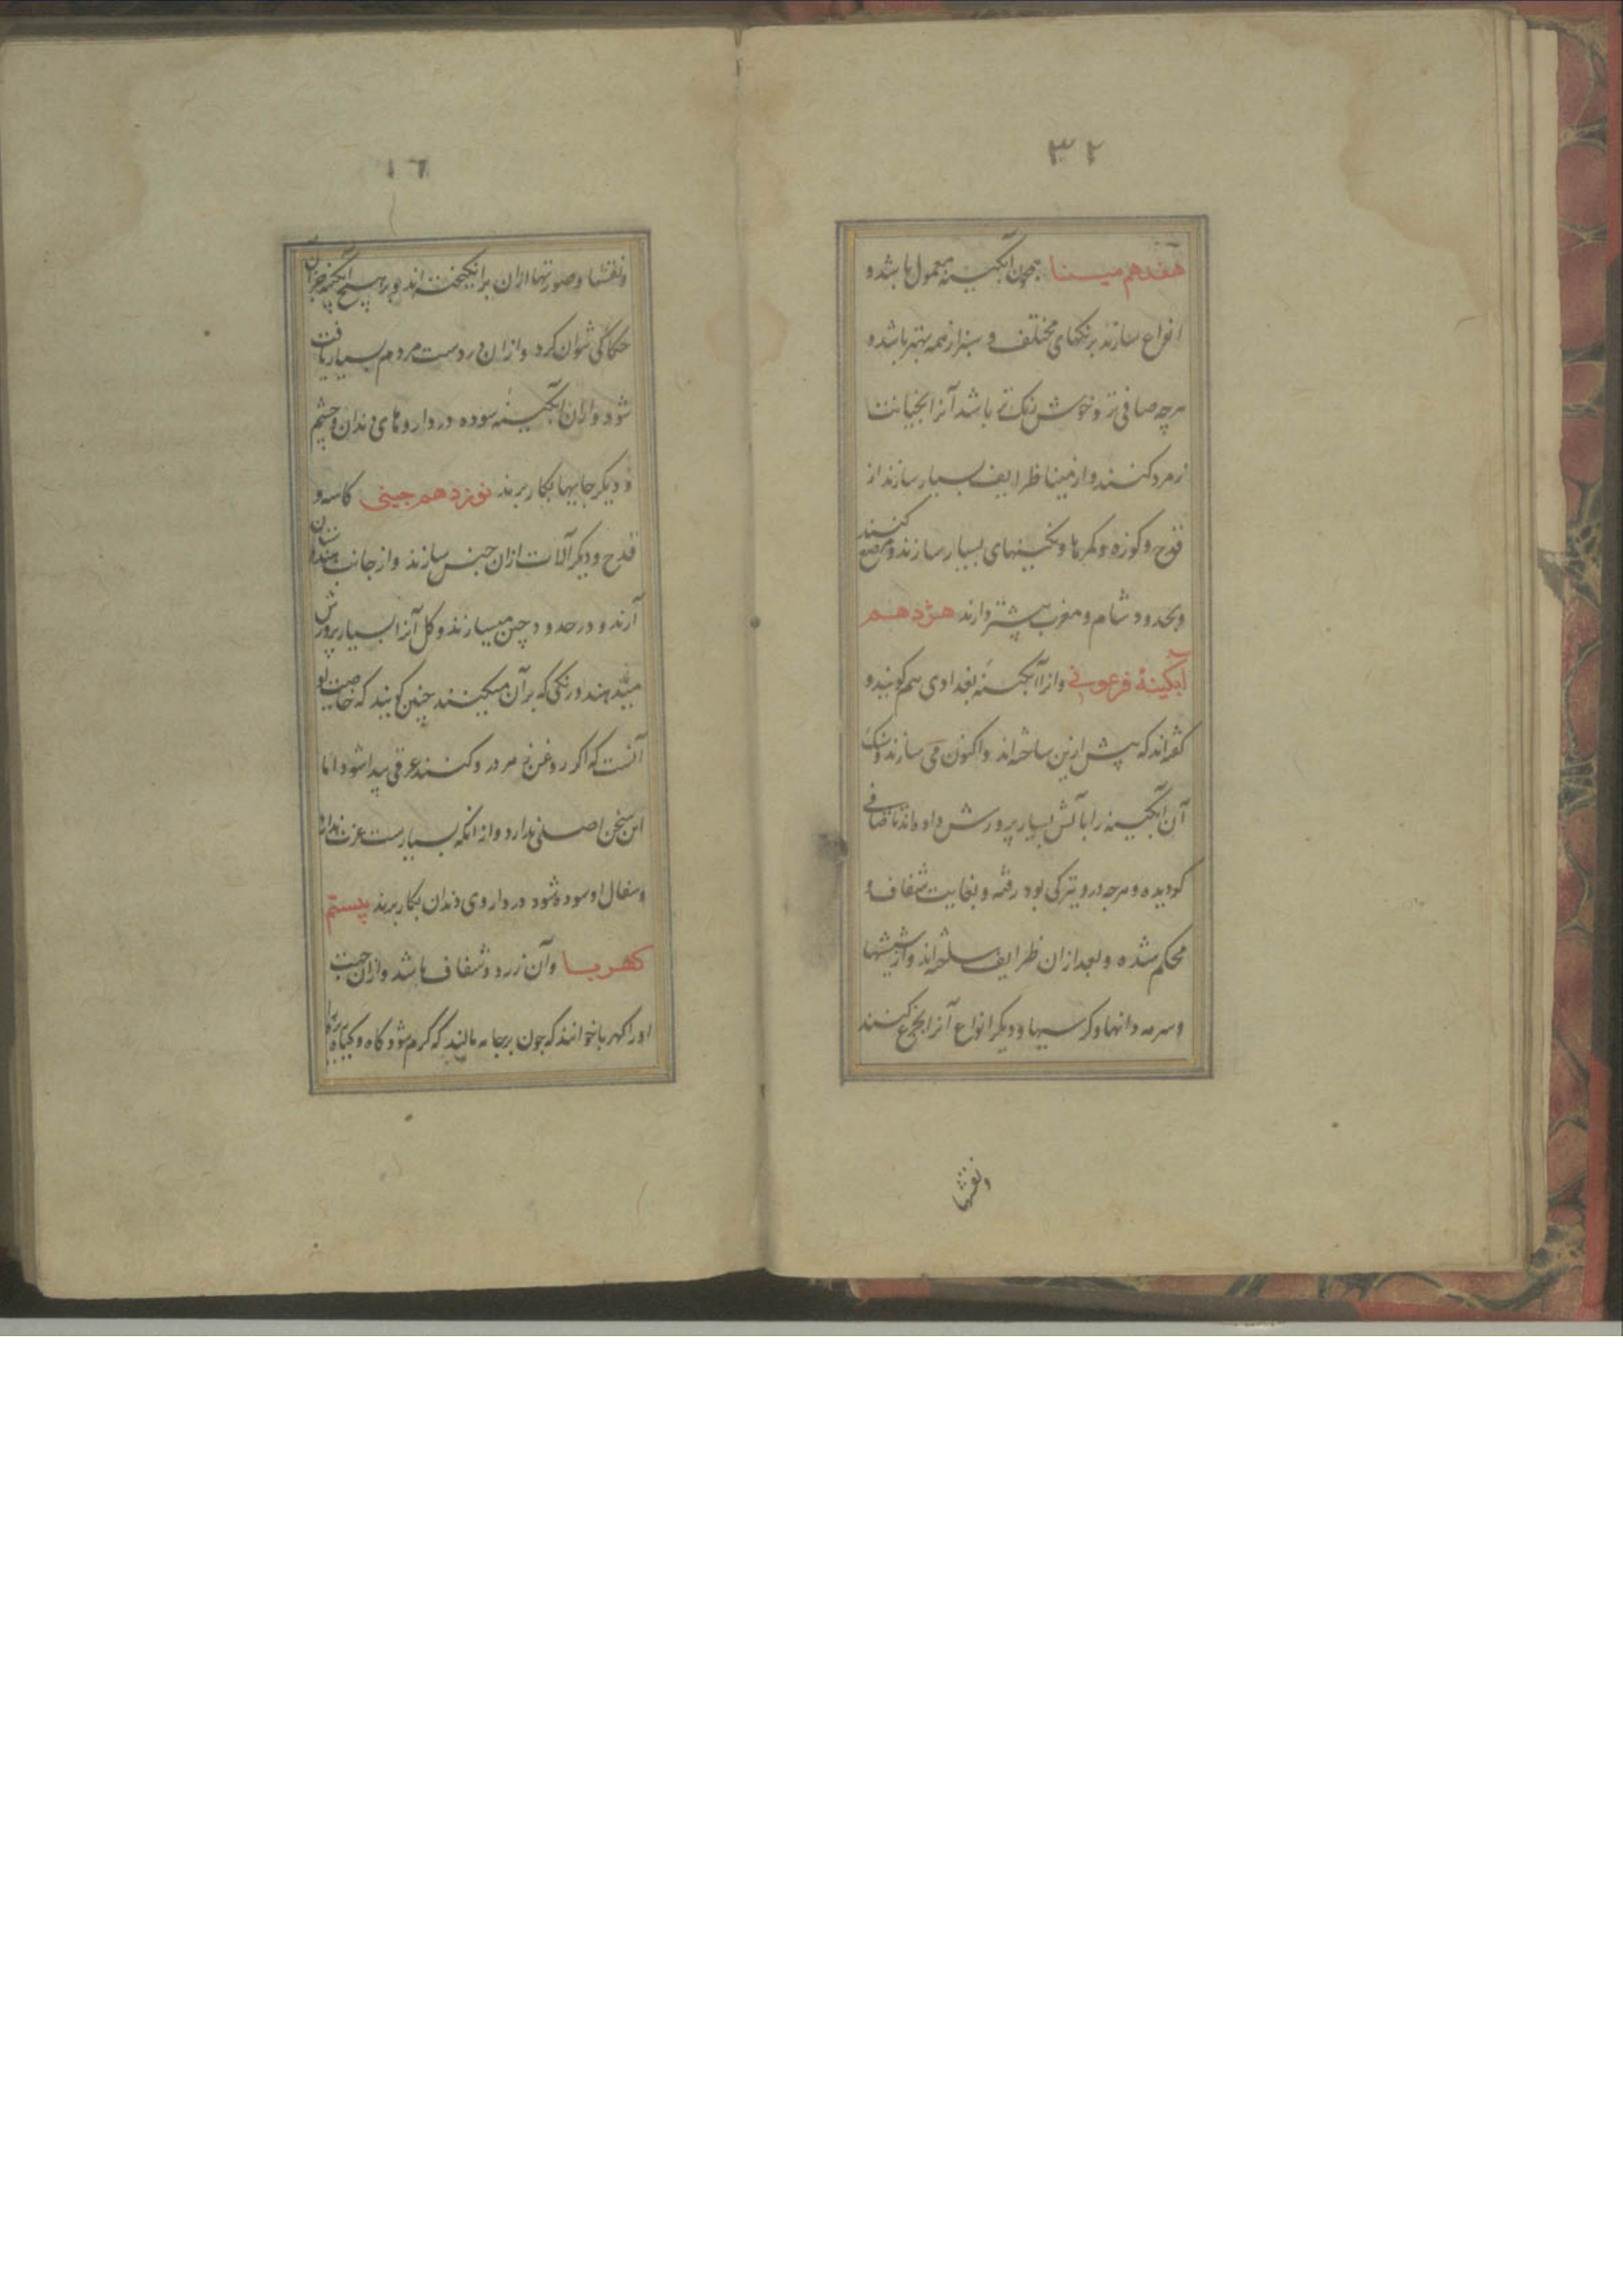 ٣٢
هفدهم مینا همچون آبکینه معمول باشد و
انواع سازند برنکهای مختلف و سبز از همه بهتر باشد و
هرچه صافی تر و خوش رنک تر باشد آنرا بخیانت
زمرد کنند و از مینا ظرایف بسیار سازند از
قدح و کوزه و کمرها و نکینهای بسیار سازند و مرصع کنند
و بحدود شام و مغرب بیشتر دارند هژدهم
آبکینهٔ فرعونی و انرا آبکینه بغدادی هم کویند و
کفته‌اند که پیش ازین ساخته‌اند و اکنون می سازند و
آن آبکینه را باتش بسیار پرورش داده‌اند تا صافی
کردیده و هرچه درو تیرکی بود رفته و بغایت شفاف و
محکم شده و بعد ازان ظرایف ساخته‌اند و از شیشها
و سرمه دانها و کرسیها و دیکر انواع آنرا بخرج کنند
و نقشها
١٦
و نقشها و صورتها ازان برانکیخته‌اند و بر هیچ آبکینه جز آن
حکاکی نتوان کرد و ازان در دست مردم بسیار یافت
شود و ازان آبکینه سوده در داروهای دندان و چشم
و دیکر جایها بکار برند نوزدهم چینی کاسه و
قدح و دیکر آلات ازان جنس سازند و از جانب هندوستان
آرند و در حدود چین میسازند و کل آنرا بسیار پرورش
میدهند و رنکی که بر آن میکنند چنین کویند که خاصیت او
آنست که اکر روغن زهر درو کنند عرقی پیدا شود اما
این سخن اصلی ندارد و از انکه بسیارست عزت ندارد
و سفال او سوده شود در داروی دندان بکار برند بیستم
کهربا وآن زرد و شفاف باشد و ازان جهت
او را کهربا خوانند که چون بر جامه مالند که کرم شود کاه و کیاه